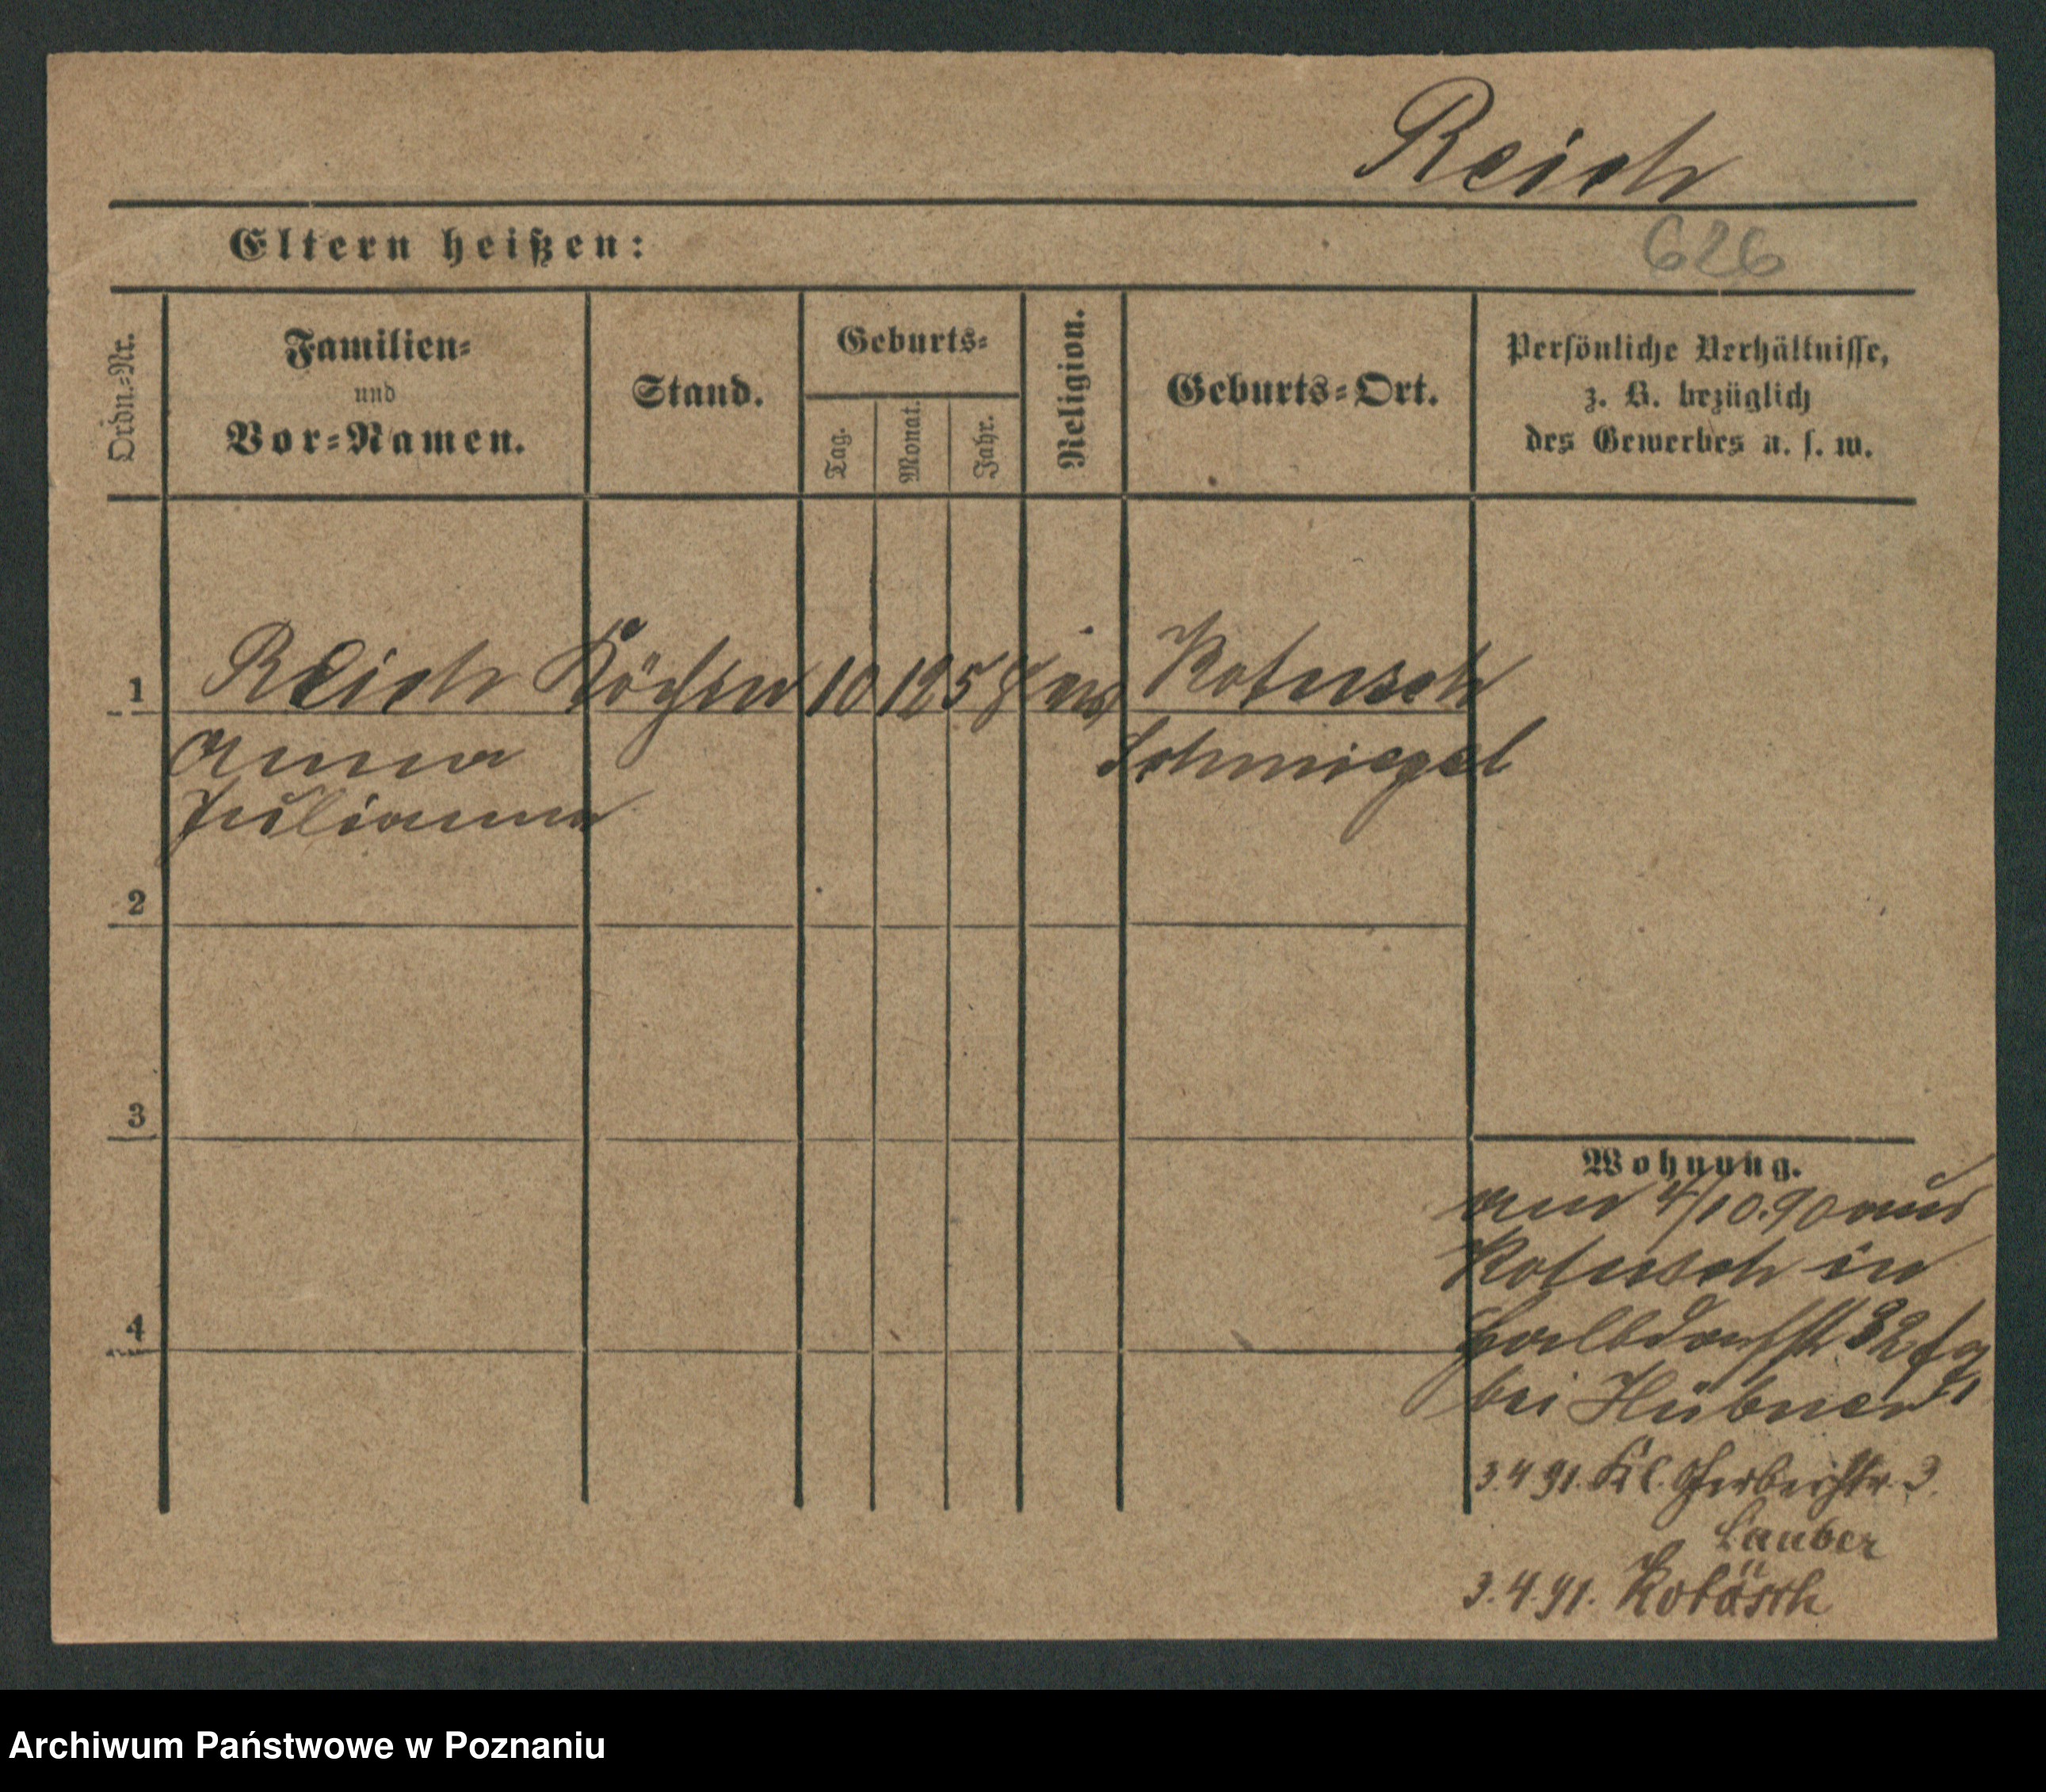 Reich
Eltern heißen:
626
Ordn.-Nr.
Familien-
und
Vor-Namen.
Stand.
Geburts-
Tag.
Monat.
Jahr.
Religion.
Geburts-Ort.
Persönliche Verhältnisse,
z. B. bezüglich
des Gewerbes u. s. w.
1 Reich Köchin 10 12 58 Kotusch
Anna Schmiegel
Julianna
2
3
4
Wohnung.
am 4/10.90 aus
Kotusch in
Halbdorfstr 32
bei Hübner
3.4.91. Kl. Gerberstr. 3.
Lauber
3.4.91. Kotusch
Archiwum Państwowe w Poznaniu